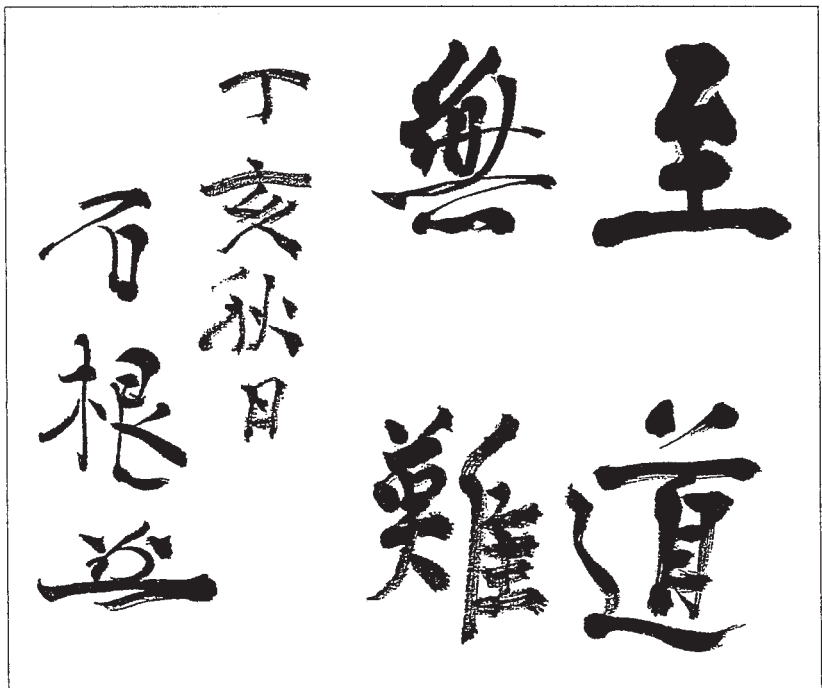 至道
無難
丁亥秋日
石根